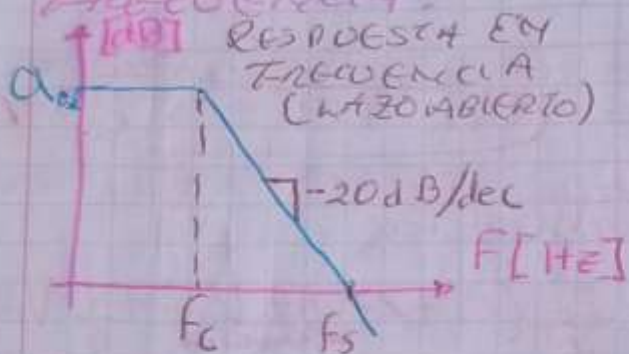 [dB] RESPUESTA EN
FRECUENCIA
(LAZO ABIERTO)
-20dB/dec
F[Hz]
fc fs